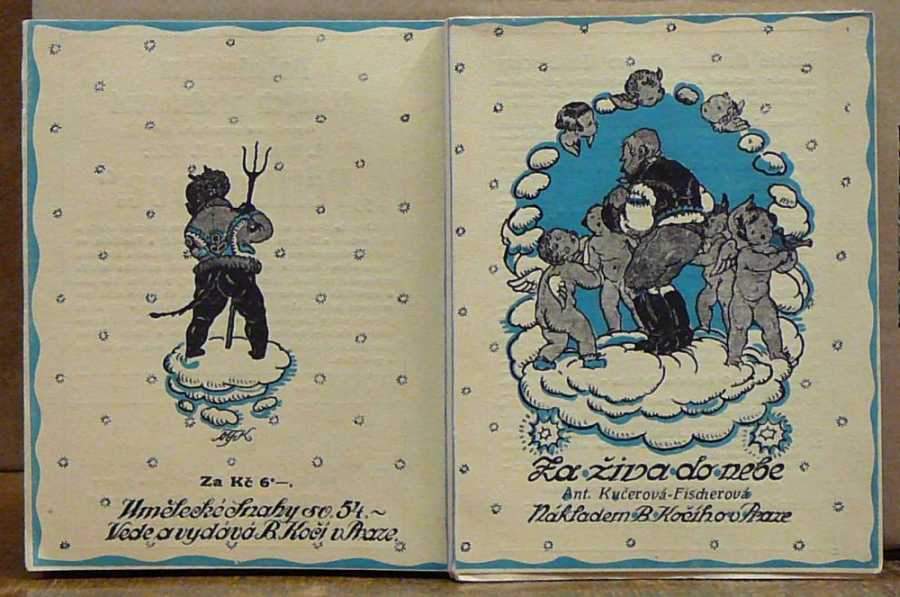 Za Kč 6·—.
Umělecké Snahy sv. 54. ~
Vede a vydává B. Kočí v Praze.
Za·živa·do·nebe
Ant. Kučerová-Fischerová
Nákladem·B·Kočího v Praze